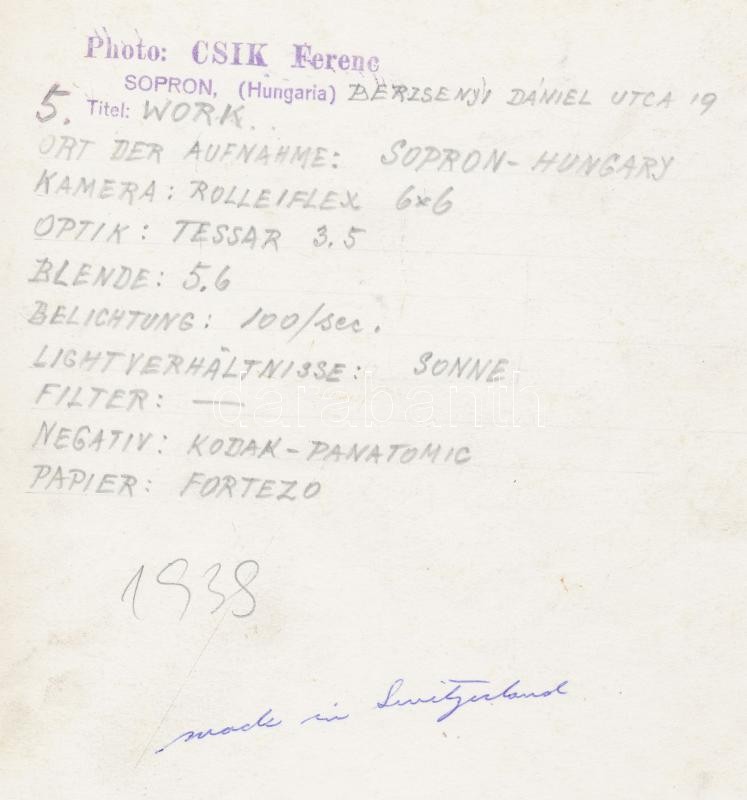 Photo: CSIK Ferenc
SOPRON, (Hungaria) BERZSENYI DÁNIEL UTCA 19
5. Titel: WORK..
ORT DER AUFNAHME: SOPRON-HUNGARY
KAMERA: ROLLEIFLEX 6x6
OPTIK: TESSAR 3.5
BLENDE: 5.6
BELICHTUNG: 100/sec.
LIGHTVERHÄLTNISSE: SONNE
FILTER: —
darabanth
NEGATIV: KODAK-PANATOMIC
PAPIER: FORTEZO
1938
made in Switzerland